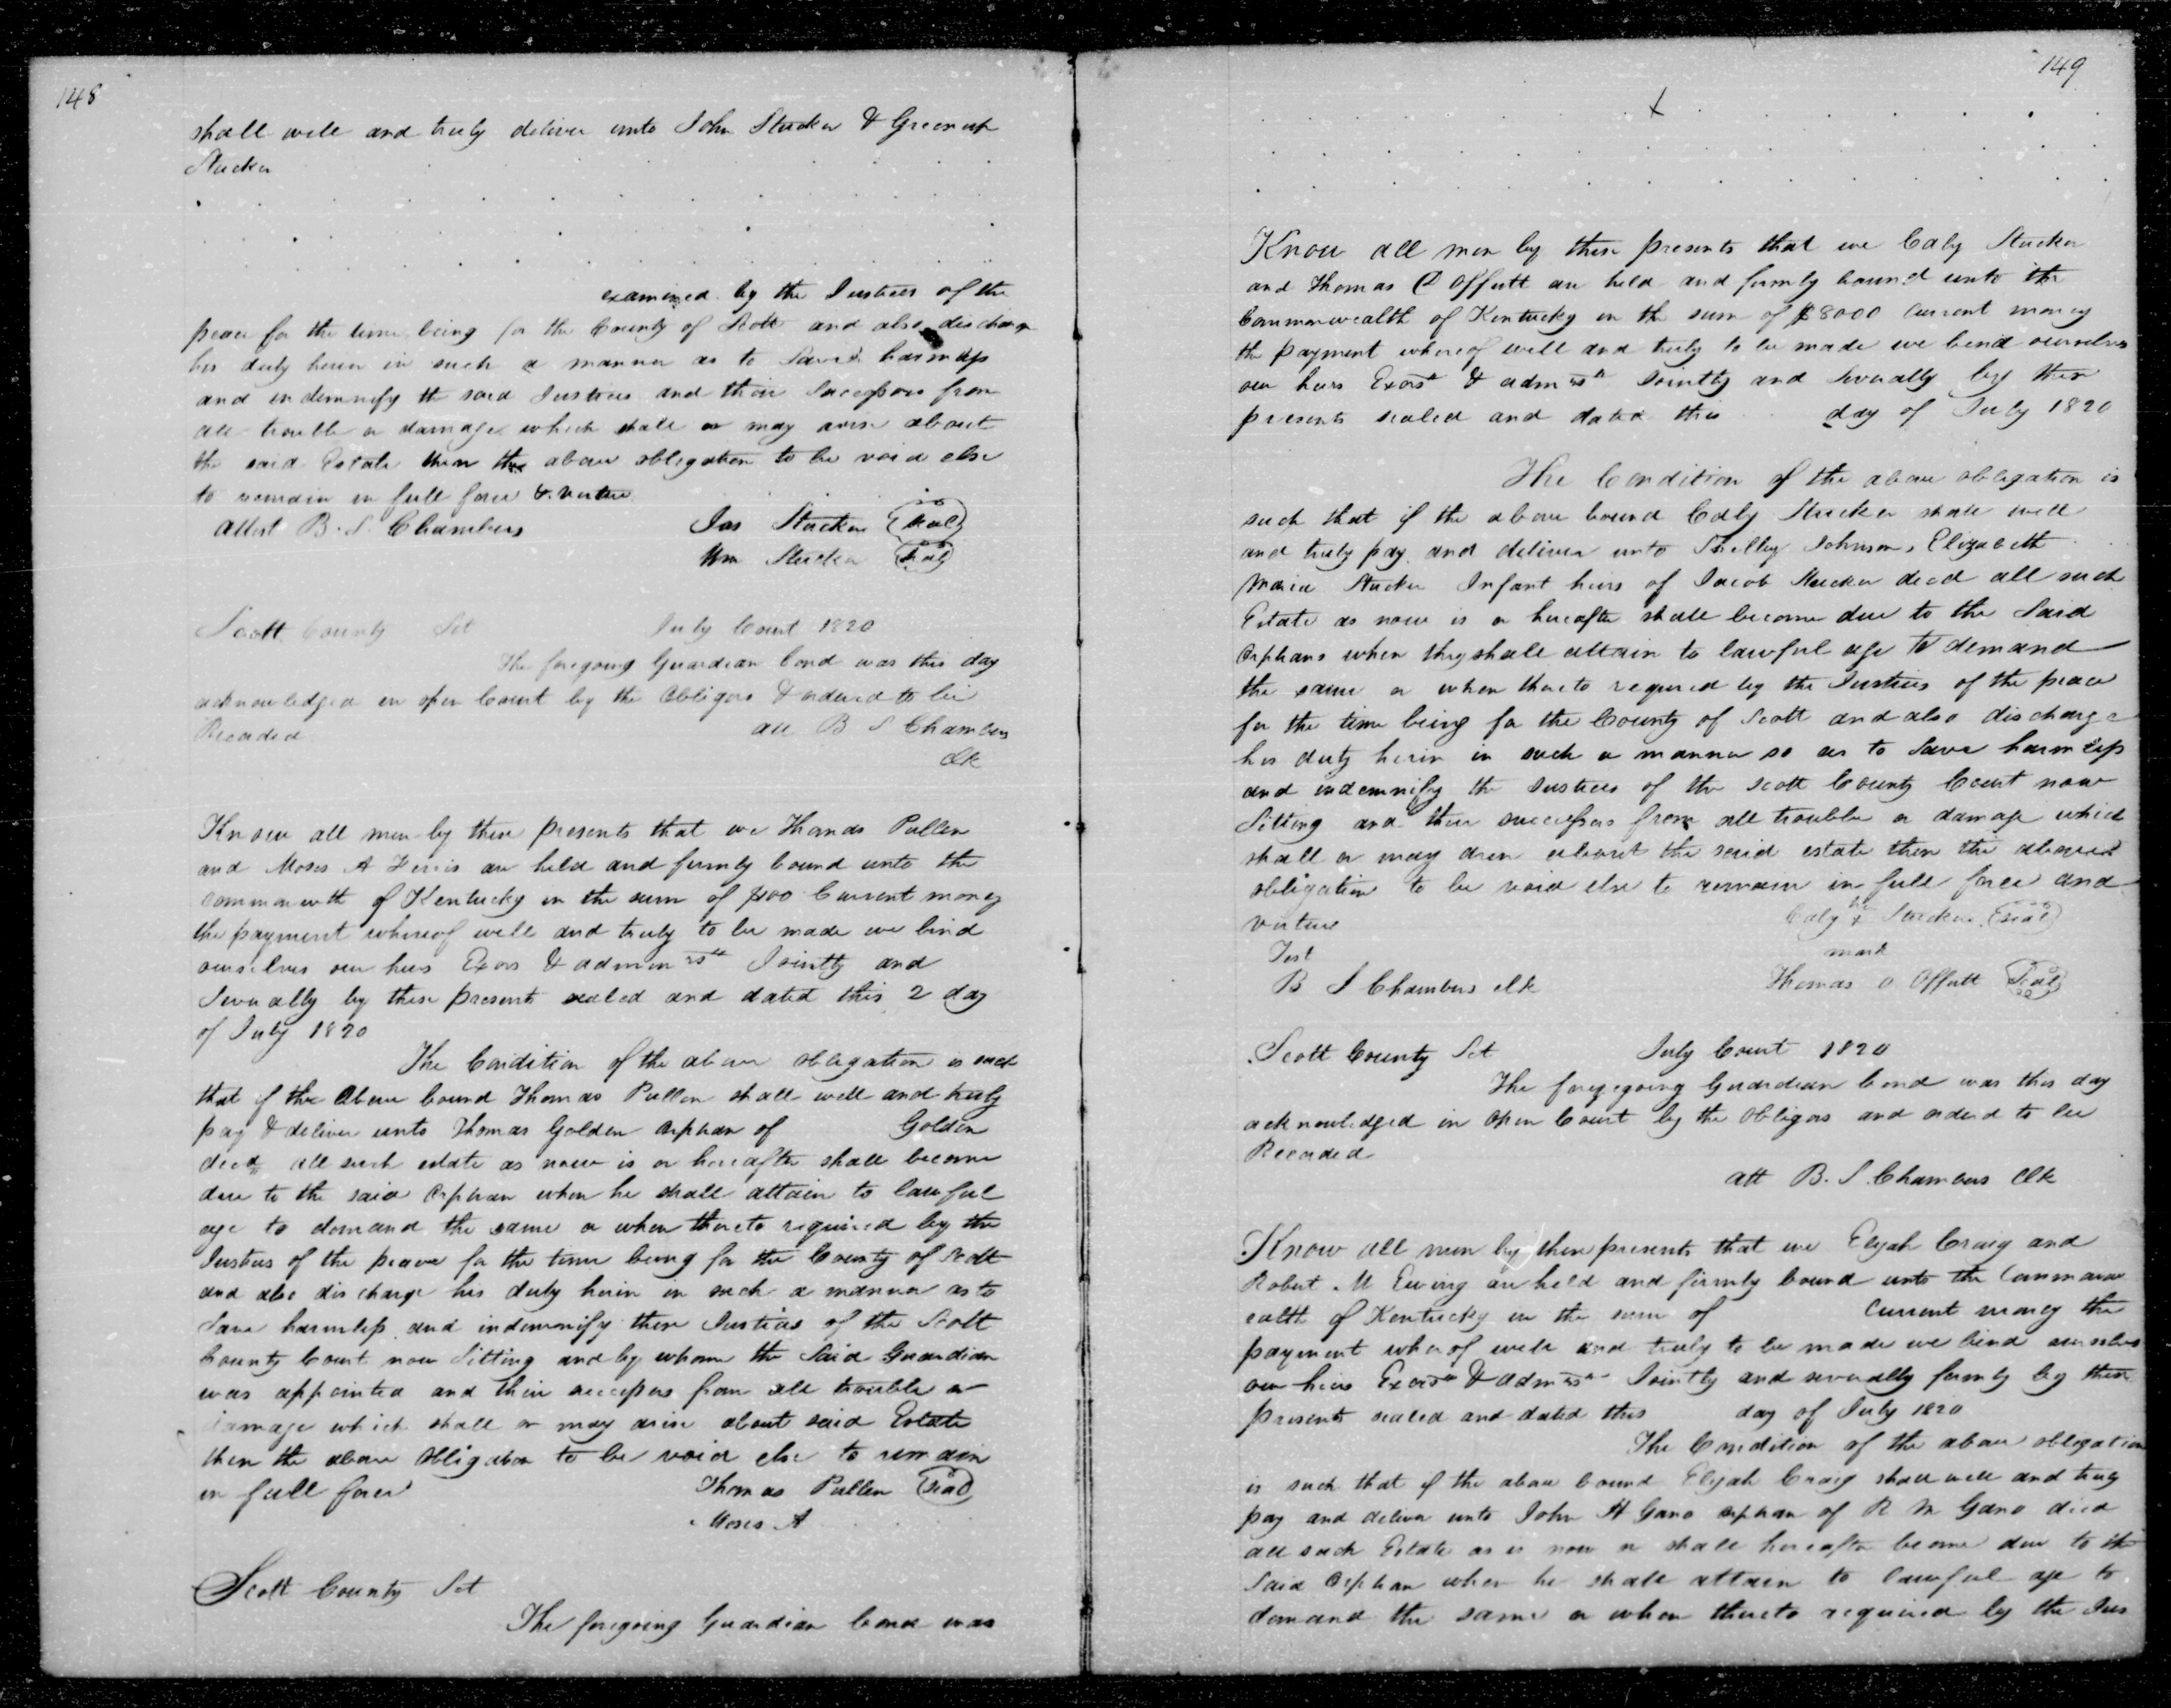 148
shall well and truly deliver unto John Stucker & Greenup
Stucker
examined by the Justices of the
peace for the time being for the County of Scott and also discharge
his duty herein in such a manner as to Save harmless
and indemnify the said Justices and their Successors from
all trouble or damage which shall or may arise about
the said Estate then the above obligation to be void else
to remain in full force & virtue
Attest B. S. Chambers Jas Stucker (seal)
Wm Stucker (seal)
Scott County Sct July Court 1820
The foregoing Guardian bond was this day
acknowledged in open Court by the Obligors & ordered to be
Recorded att B S Chambers
Clk
Know all men by these presents that we Thomas Pullen
and Moses A are held and firmly bound unto the
commonwth of Kentucky in the sum of $100 Current money
the payment whereof well and truly to be made we bind
ourselves our heirs Exors & adminrs Jointly and
Severally by these presents sealed and dated this 2 day
of July 1820
The Condition of the above obligation is such
that if the above bound Thomas Pullen shall well and truly
pay & deliver unto Thomas Golden orphan of Golden
decd all such estate as now is or hereafter shall become
due to the said Orphan when he shall attain to lawful
age to demand the same or when thereto required by the
Justices of the peace for the time being for the County of Scott
and also discharge his duty herein in such a manner as to
Save harmless and indemnify these Justices of the Scott
County Court now Sitting and by whom the Said Guardian
was appointed and their successors from all trouble or
damage which shall or may arise about said Estate
then the above Obligation to be void else to remain
in full force Thomas Pullen (seal)
Moses A
Scott County Sct
The foregoing Guardian bond was
149
x
Know all men by these presents that we Caty Stucker
and Thomas O Offutt are held and firmly bound unto the
Commonwealth of Kentucky in the sum of $8000 Current money
the payment whereof well and truly to be made we bind ourselves
our heirs Exors & admrs Jointly and Severally by these
presents sealed and dated this day of July 1820
The Condition of the above obligation is
such that if the above bound Caty Stucker shall well
and truly pay and deliver unto Shelby Johnson, Elizabeth
Maria Stucker Infant heirs of Jacob Stucker decd all such
Estate as now is or hereafter shall become due to the Said
Orphans when they shall attain to lawful age to demand
the same or when thereto required by the Justices of the peace
for the time being for the County of Scott and also discharge
his duty herein in such a manner so as to Save harmless
and indemnify the Justices of the Scott County Court now
Sitting and their successors from all trouble or damage which
shall or may arise about the said estate then the above
obligation to be void else to remain in full force and
virtue Caty x Stucker (seal)
Test mark
B S Chambers clk Thomas O Offutt (Seal)
Scott County Sct July Court 1820
The foregoing Guardian bond was this day
acknowledged in open Court by the Obligors and ordered to be
Recorded
att B. S. Chambers Clk
Know all men by these presents that we Elijah Craig and
Robert M Ewing are held and firmly bound unto the Commonw
ealth of Kentucky in the sum of Current money the
payment whereof well and truly to be made we bind ourselves
our heirs Exors & admrs Jointly and severally firmly by these
presents sealed and dated this day of July 1820
The Condition of the above obligation
is such that if the above bound Elijah Craig shall well and truly
pay and deliver unto John A Gano orphan of R M Gano decd
all such Estate as is now or shall hereafter become due to the
Said Orphan when he shall attain to lawful age to
demand the same or when thereto required by the Jus